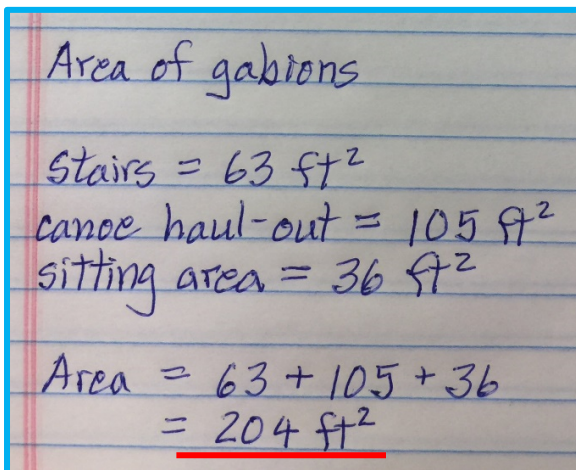 Area of gabions
stairs = 63 ft²
canoe haul-out = 105 ft²
sitting area = 36 ft²
Area = 63 + 105 + 36
= 204 ft²